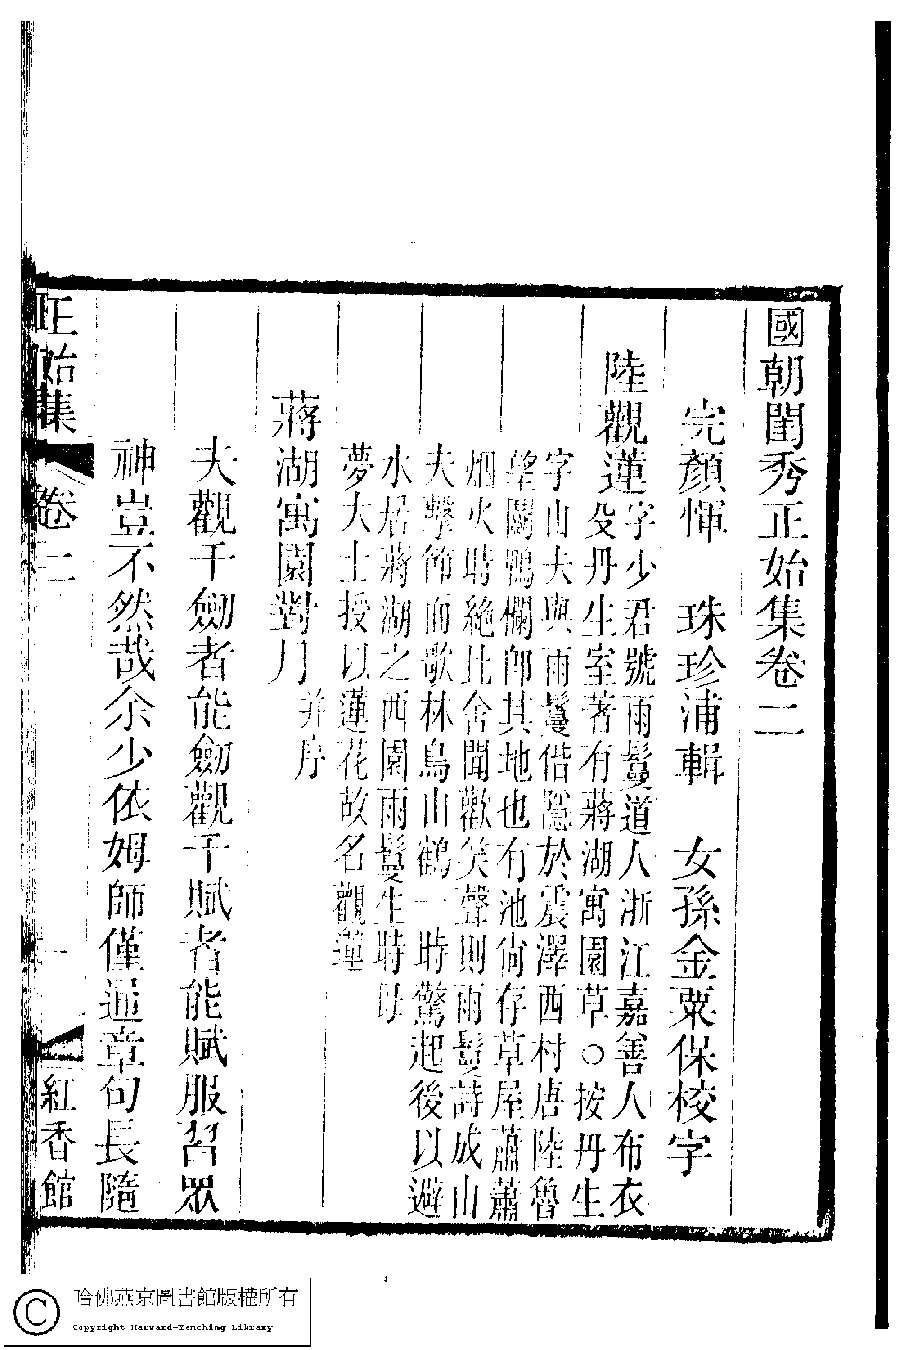 國朝閨秀正始集卷二
完顏惲 珠珍浦輯 女孫金粟保校字
陸觀蓮
字少君號雨鬘道人浙江嘉善人布衣
殳丹生室著有蔣湖寓園草○按丹生
字山夫與雨鬘偕隱於震澤西村唐陸魯
望鬬鴨欄即其地也有池尚存草屋蕭蕭
烟火時絶比舍聞歡笑聲則雨鬘詩成山
夫擊節而歌林鳥山鶴一時驚起後以避
水居蔣湖之西園雨鬘生時母
夢大士授以蓮花故名觀蓮
蔣湖寓園對月 并序
夫觀千劒者能劒觀千賦者能賦服習眾
神豈不然哉余少依姆師僅通章句長隨
正始集 卷二 一 紅香館
哈佛燕京圖書館版權所有
Copyright Harvard-Yenching Library